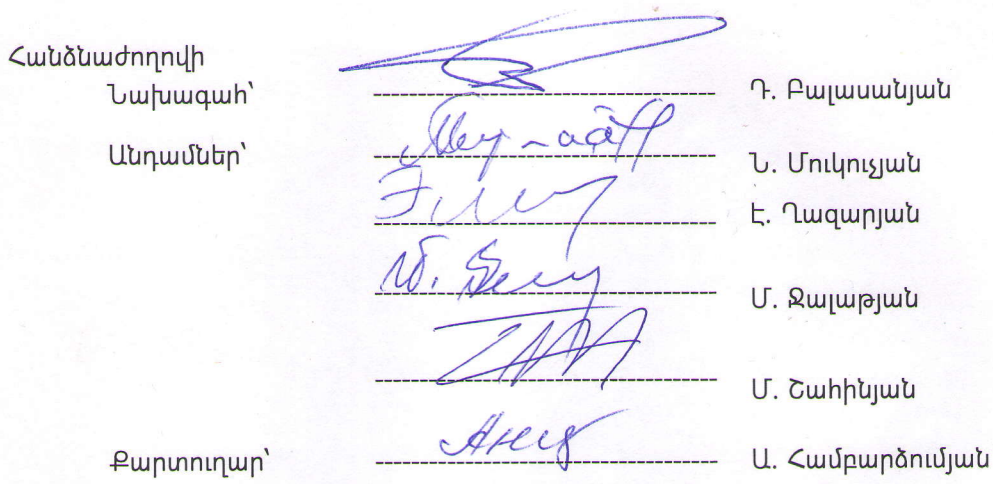 Հանձնաժողովի
Նախագահ՝ Դ. Բալասանյան
Անդամներ՝ Ն. Մուկուչյան
Է. Ղազարյան
Մ. Ջալաթյան
Մ. Շահինյան
Քարտուղար՝ Ա. Համբարձումյան